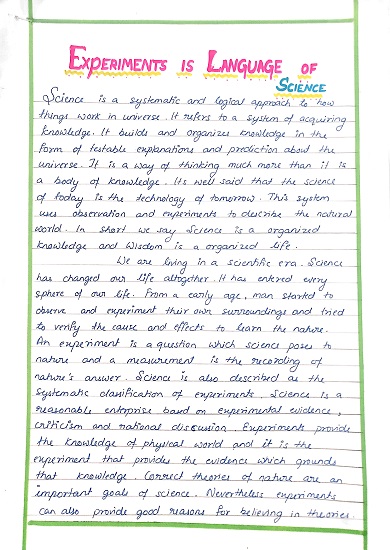 EXPERIMENTS IS LANGUAGE OF
SCIENCE
Science is a systematic and logical approach to how
things work in universe. It refers to a system of acquiring
knowledge. It builds and organizes knowledge in the
form of testable explanations and prediction about the
universe. It is a way of thinking much more than it is
a body of knowledge. Its well said that the science
of today is the technology of tomorrow. This system
uses observation and experiments to describe the natural
world. In short we say Science is a organized
knowledge and Wisdom is a organized life.
We are living in a scientific era. Science
has changed our life altogether. It has entered every
sphere of our life. From a early age, man started to
observe and experiment their own surroundings and tried
to verify the cause and effects to learn the nature.
An experiment is a question which science poses to
nature and a measurement is the recording of
nature's answer. Science is also described as the
systematic classification of experiments. Science is a
reasonable enterprise based on experimental evidence,
criticism and rational discussion. Experiments provide
the knowledge of physical world and it is the
experiment that provides the evidence which grounds
that knowledge. Correct theories of nature are an
important goals of science. Nevertheless experiments
can also provide good reasons for believing in theories.